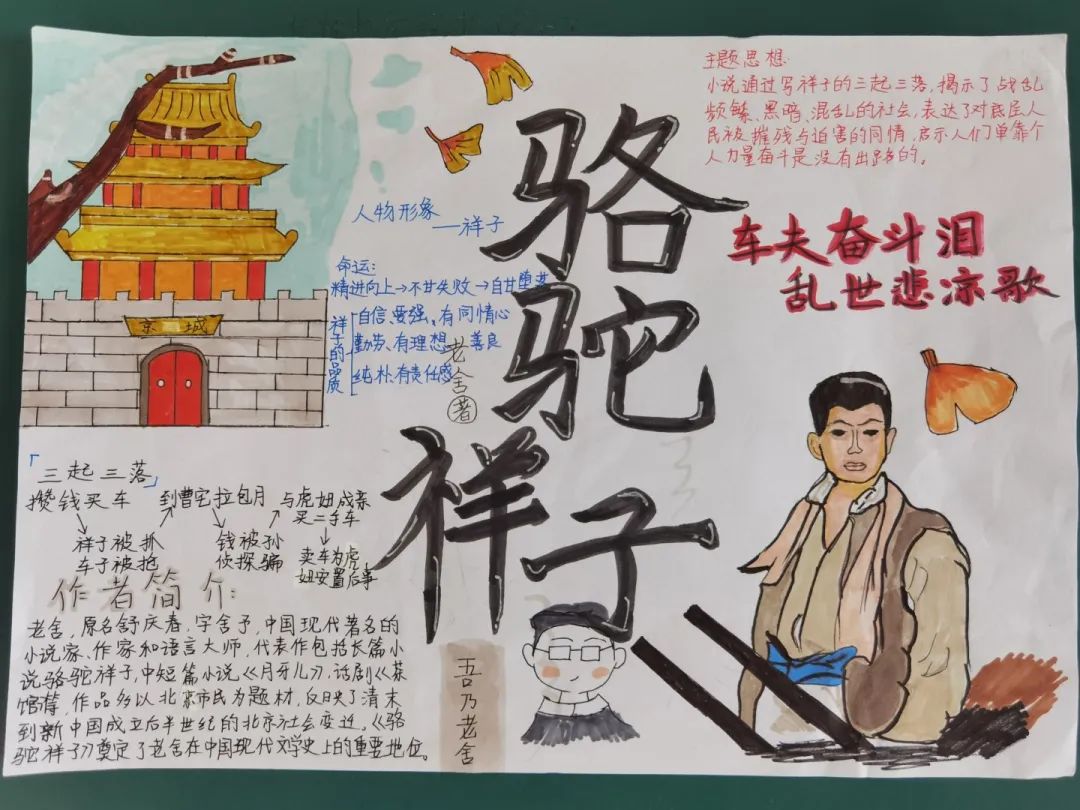 骆驼祥子
老舍
著
主题思想:
小说通过写祥子的三起三落,揭示了战乱
频繁、黑暗、混乱的社会,表达了对底层人
民被摧残与迫害的同情,启示人们单靠个
人力量奋斗是没有出路的。
车夫奋斗泪
乱世悲凉歌
京城
人物形象
—祥子
命运:
精进向上→不甘失败→自甘堕落
祥子的品质
自信、要强、有同情心
勤劳、有理想、善良
纯朴、有责任感
「三起三落」
攒钱买车
祥子被抓
车子被抢
到曹宅拉包月
钱被孙
侦探骗
与虎妞成亲
买二手车
卖车为虎
妞安置后事
作者简介:
老舍,原名舒庆春,字舍予,中国现代著名的
小说家、作家和语言大师,代表作包括长篇小
说骆驼祥子,中短篇小说《月牙儿》,话剧《茶
馆》等,作品多以北京市民为题材,反映了清末
到新中国成立后半世纪的北京社会变迁,《骆
驼祥子》奠定了老舍在中国现代文学史上的重要地位。
吾乃老舍